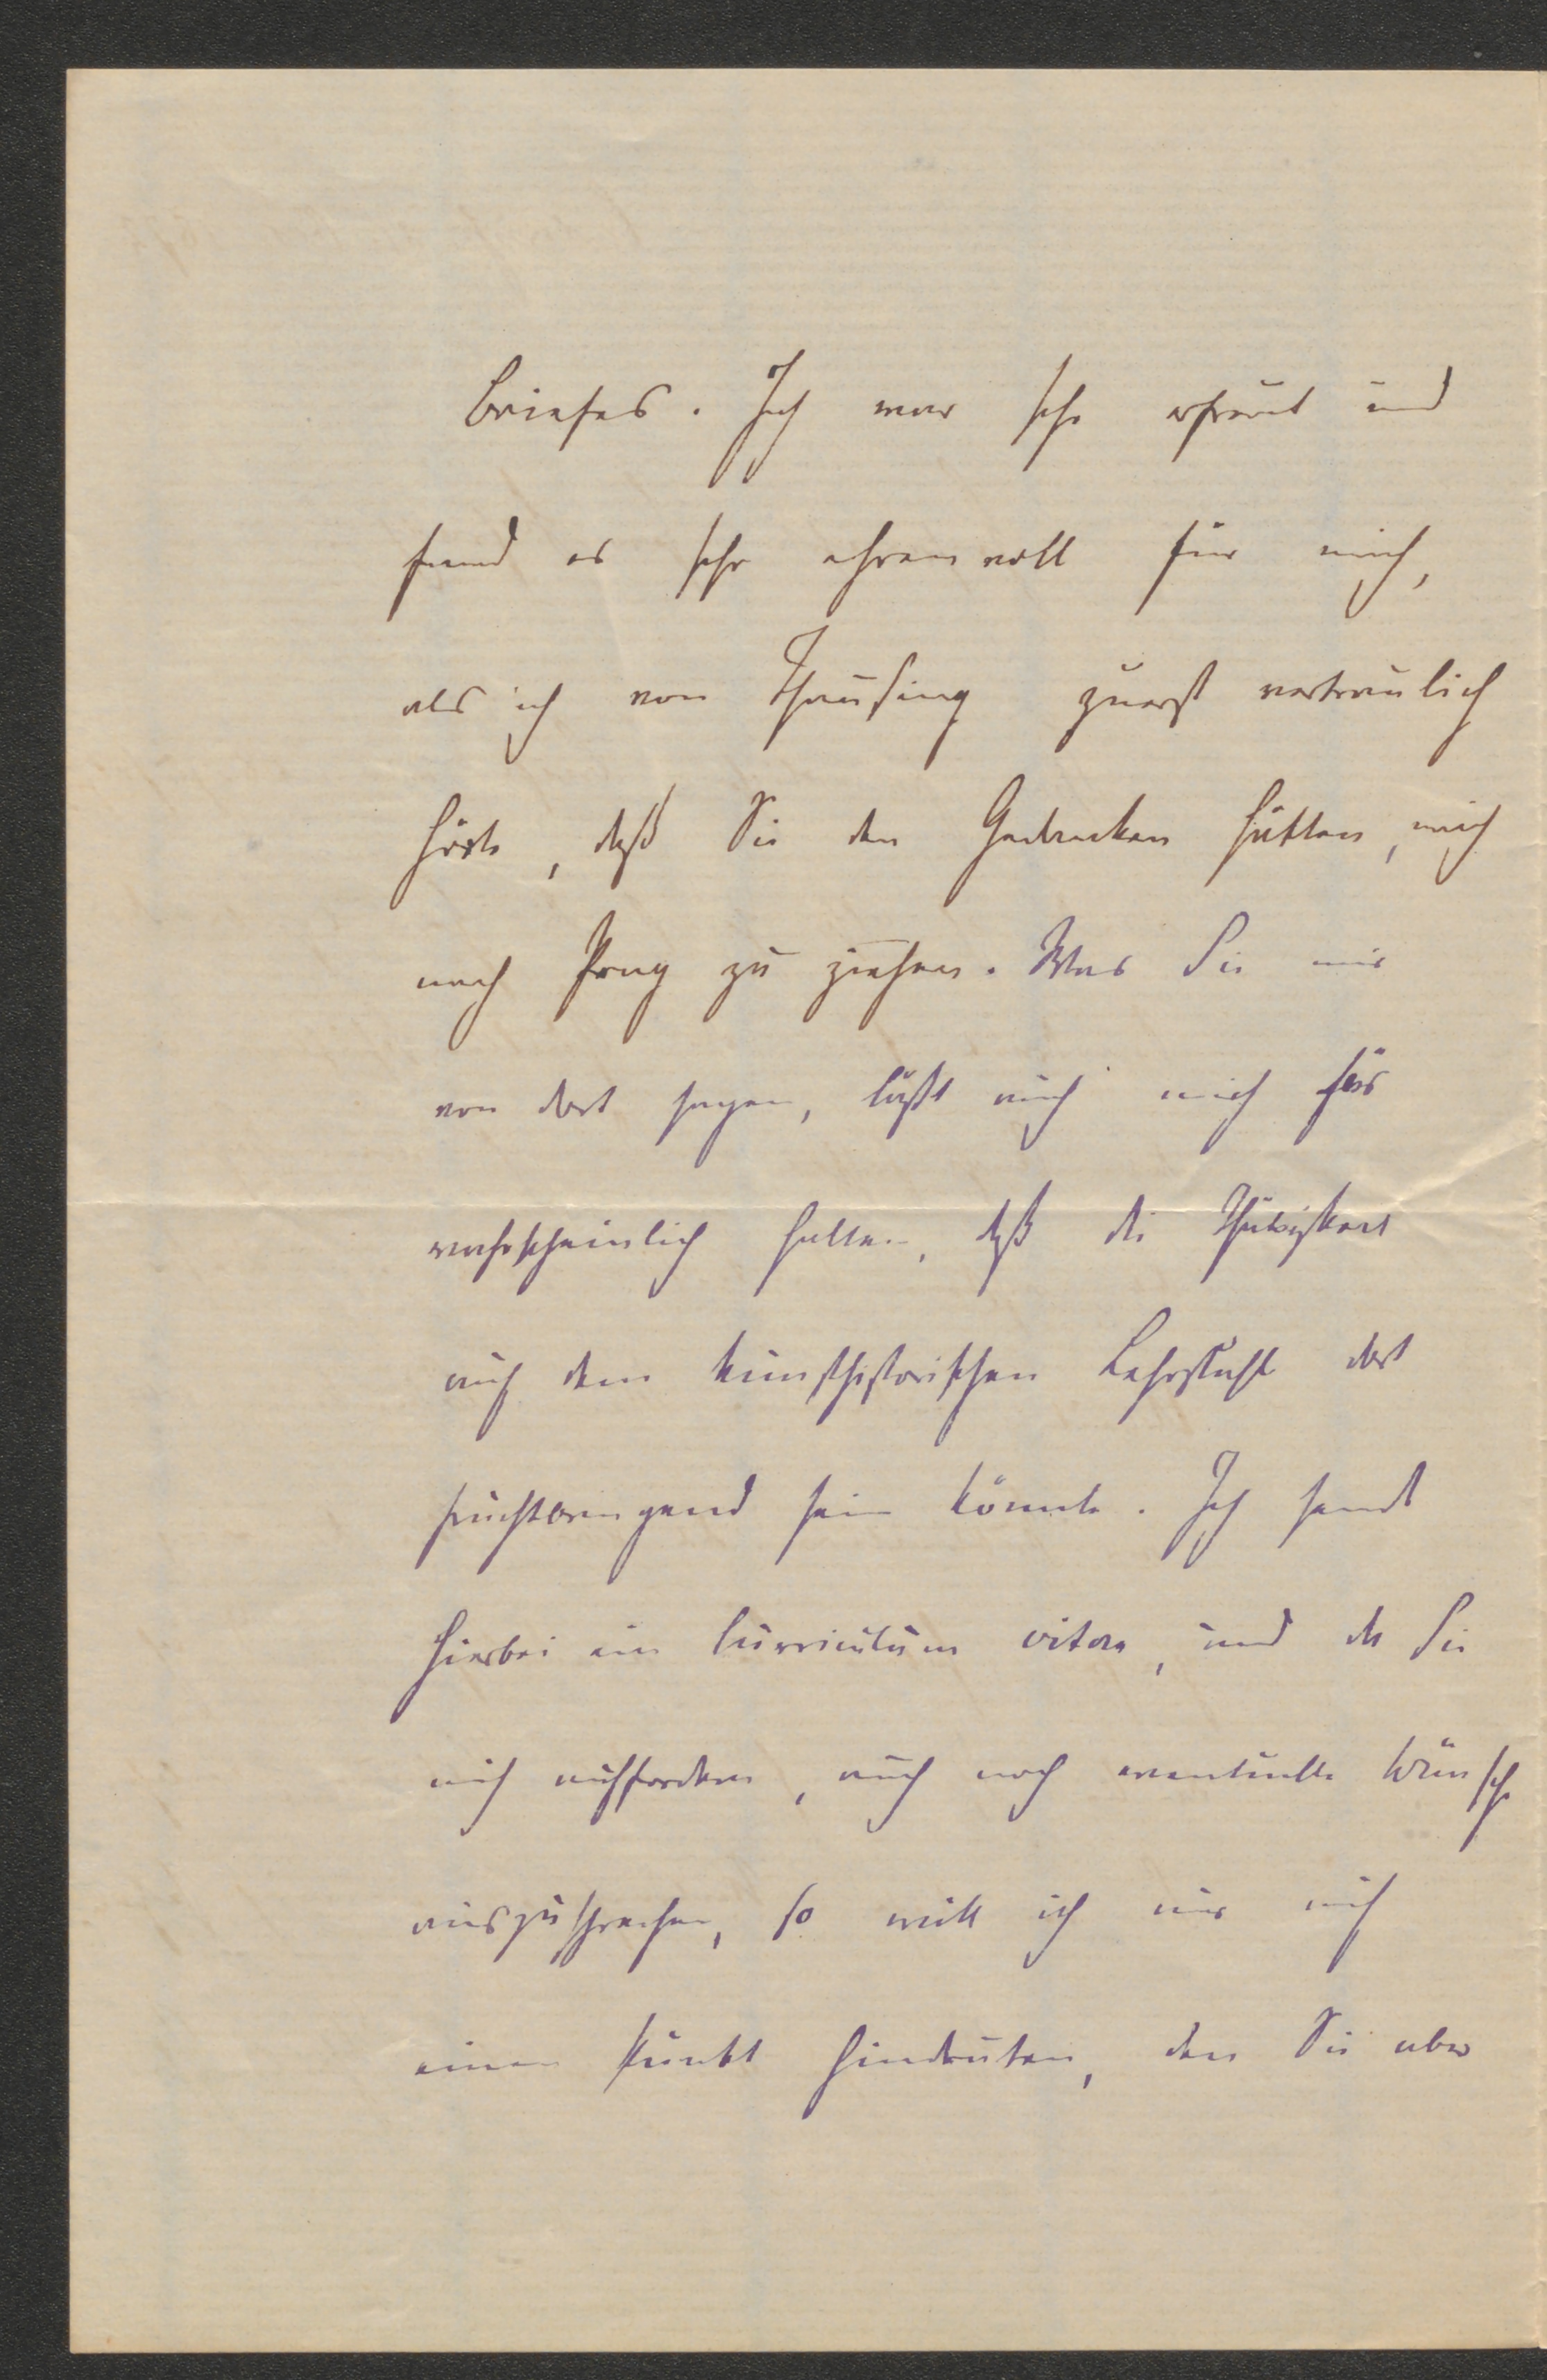 Briefes. Ich war sehr erfreut und
fand es sehr ehrenvoll für mich,
als ich von Thausing zuerst vertraulich
hörte, daß Sie den Gedanken hätten, mich
nach Prag zu ziehen. Was Sie mir
von dort sagen, läßt auch mich für
wahrscheinlich halten, daß die Thätigkeit
auf dem kunsthistorischen Lehrstuhl dort
fruchtbringend sein könnte. Ich sende
hierbei ein Curriculum vitae, und da Sie
mich auffordern, auch noch eventuelle Wünsche
auszusprechen, so will ich nur auf
einen Punkt hindeuten, den Sie aber